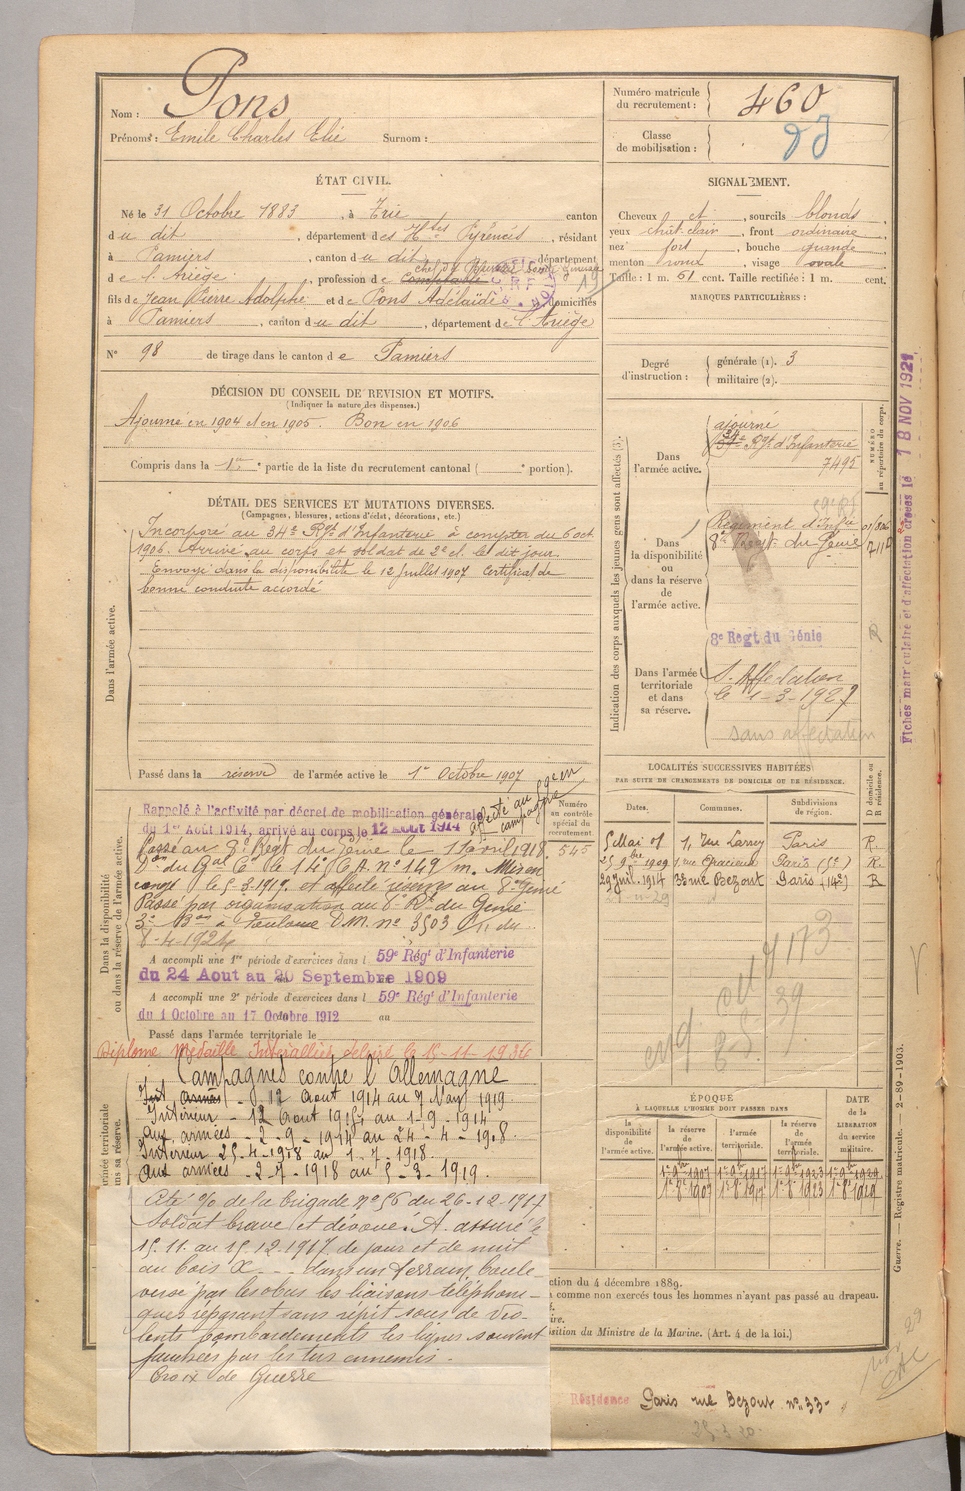 Nom : Pons
Prénoms : Emile Charles Elie Surnom :
Numéro matricule du recrutement : 460
Classe de mobilisation :
ÉTAT CIVIL.
Né le 31 Octobre 1883, à Trie canton
du dit, département des Htes Pyrénées, résidant
à Pamiers, canton du dit département
de l'Ariège, profession de Comptable
fils de Jean Pierre Adolphe et de Pons Adélaïde domiciliés
à Pamiers, canton du dit, département de l'Ariège
N° 98 de tirage dans le canton de Pamiers
SIGNALEMENT.
Cheveux et, sourcils blonds
yeux chât. clair, front ordinaire
nez fort, bouche grande
menton rond, visage ovale
Taille : 1 m. 61 cent. Taille rectifiée : 1 m. cent.
MARQUES PARTICULIÈRES :
Degré d'instruction : générale (1). 3
militaire (2).
DÉCISION DU CONSEIL DE REVISION ET MOTIFS.
(Indiquer la nature des dispenses.)
Ajourné en 1904 et en 1905. Bon en 1906
Compris dans la 1re partie de la liste du recrutement cantonal ( portion).
DÉTAIL DES SERVICES ET MUTATIONS DIVERSES.
(Campagnes, blessures, actions d'éclat, décorations, etc.)
Dans l'armée active.
Incorporé au 34e Régt d'Infanterie à compter du 6 oct.
1906. Arrivé au corps et soldat de 2e cl. le dit jour.
Envoyé dans la disponibilité le 12 Juillet 1907 Certificat de
bonne conduite accordé
Passé dans la réserve de l'armée active le 1er Octobre 1907
Indication des corps auxquels les jeunes gens sont affectés (3).
Dans l'armée active.
ajourné
34e Rgt d'Infanterie
7495
NUMÉRO au répertoire du corps.
Dans la disponibilité ou dans la réserve de l'armée active.
Régiment d'Infie
8e Régt du Génie
8e Regt du Génie
Dans l'armée territoriale et dans sa réserve.
S. Affectation
le 1-3-1927
sans affectation
Fiches matriculaire et d'affectation créées le 18 NOV 1921
Dans la disponibilité ou dans la réserve de l'armée active.
Rappelé à l'activité par décret de mobilisation générale
du 1er Août 1914, arrivé au corps le 12 AOUT 1914
Passé au 8e Régt du Génie le 1er avril 1918.
Don du Gal Ct le 14e C.A. n° 149/m. Mis en
congé le 5-3-1919 et affecté réserve au 8e Génie
Passé par organisation au 8e Rt du Génie
3e Bon à Toulouse D.M. n° 3503 du
8-4-1924
Numéro au contrôle spécial du recrutement
545
A accompli une 1re période d'exercices dans l 59e Régt d'Infanterie
du 24 Aout au 20 Septembre 1909
A accompli une 2e période d'exercices dans l 59e Régt d'Infanterie
du 1 Octobre au 17 Octobre 1912 au
Passé dans l'armée territoriale le
Diplome Médaille Interalliée délivré le 15-11-1936
Campagnes contre l'Allemagne
Int armées - 12 Aout 1914 au 7 Nov 1919.
Intérieur - 12 Aout 1914 au 1-9-1914
aux armées - 2-9-1914 au 24-4-1918.
Intérieur 25-4-1918 au 1-7-1918.
aux armées - 2-7-1918 au 5-3-1919.
Cité % de la brigade n° 56 du 26-12-1917
Soldat brave et dévoué. A assuré le
15.11. au 15.12.1917 de jour et de nuit
au bois X... dans un terrain boule-
versé par les obus les liaisons téléphoni-
ques réparant sans répit sous de vio-
lents bombardements les lignes souvent
fauchées par les tirs ennemis.
Croix de Guerre
LOCALITÉS SUCCESSIVES HABITÉES
PAR SUITE DE CHANGEMENTS DE DOMICILE OU DE RÉSIDENCE.
Dates. Communes. Subdivisions de région. D domicile ou R résidence.
5 Mai 08 1, rue Larrey Paris R.
25 9bre 1909 1 rue Gracieuse Paris (5e) R.
29 Juil. 1914 33 rue Bezout Paris (14e) R
ÉPOQUE
À LAQUELLE L'HOMME DOIT PASSER DANS
la disponibilité de l'armée active. la réserve de l'armée active. l'armée territoriale. la réserve de l'armée territoriale. DATE de la LIBÉRATION du service militaire.
1er 8bre 1907 1er 8bre 1917 1er 8bre 1923 1er 8bre 1929
ction du 4 décembre 1889.
s comme non exercés tous les hommes n'ayant pas passé au drapeau.
osition du Ministre de la Marine. (Art. 4 de la loi.)
Guerre. — Registre matricule. — 2-89-1903.
Résidence Paris rue Bezout n° 33